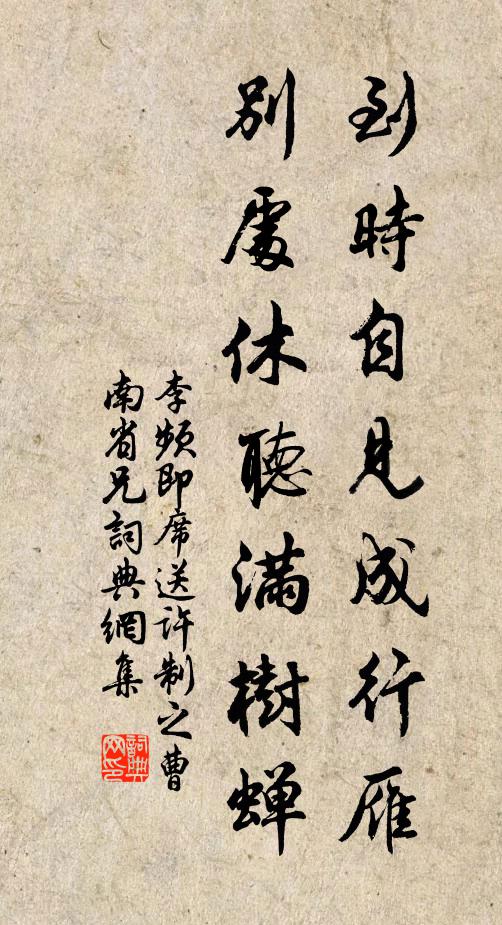 到時自見成行雁
別處休聽滿樹蟬
李頻即席送許制之曹
南省兄詞典網集
詞典網印